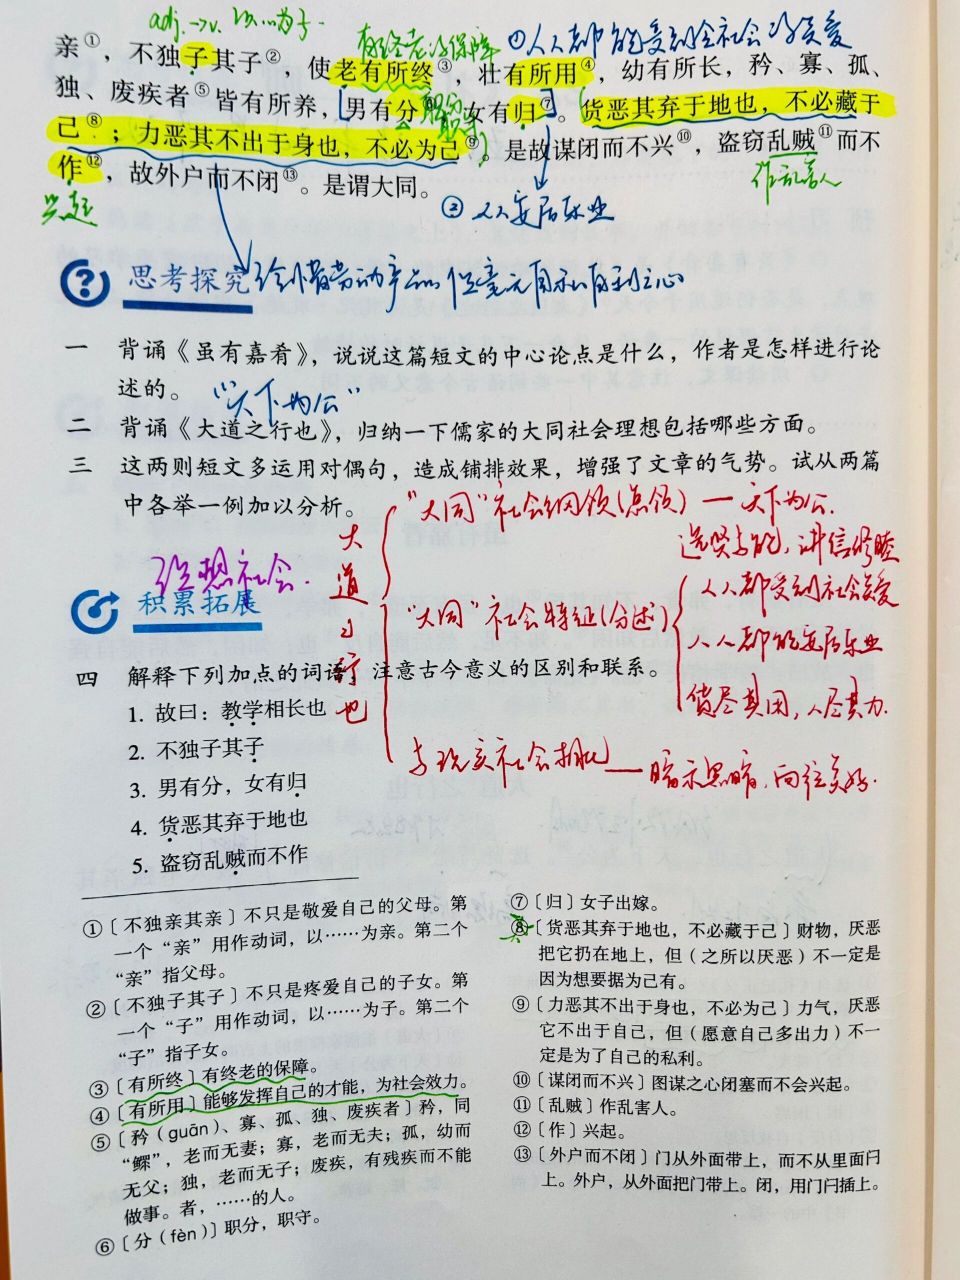 adj.→v. 以…为子.
有终老的保障 ①人人都能受到全社会的关爱
亲①，不独子其子②，使老有所终③，壮有所用④，幼有所长，矜、寡、孤、
独、废疾者⑤皆有所养，男有分⑥，女有归⑦。货恶其弃于地也，不必藏于
职分
职守
己⑧；力恶其不出于身也，不必为己⑨。是故谋闭而不兴⑩，盗窃乱贼⑪而不
作⑫，故外户而不闭⑬。是谓大同。
作乱害人
兴起
②人人安居乐业
思考探究
一 背诵《虽有嘉肴》，说说这篇短文的中心论点是什么，作者是怎样进行论
述的。
“天下为公”
二 背诵《大道之行也》，归纳一下儒家的大同社会理想包括哪些方面。
三 这两则短文多运用对偶句，造成铺排效果，增强了文章的气势。试从两篇
中各举一例加以分析。
“大同”社会纲领(总领)—天下为公.
选贤与能，讲信修睦
理想社会.
大道之行也
人人都受到社会关爱
积累拓展
“大同”社会特征(分述)
人人都能安居乐业
四 解释下列加点的词语，注意古今意义的区别和联系。
货尽其用，人尽其力.
1. 故曰：教学相长也
2. 不独子其子
与现实社会对比—暗示黑暗，向往美好.
3. 男有分，女有归
4. 货恶其弃于地也
5. 盗窃乱贼而不作
①〔不独亲其亲〕不只是敬爱自己的父母。第
一个“亲”用作动词，以……为亲。第二个
“亲”指父母。
②〔不独子其子〕不只是疼爱自己的子女。第
一个“子”用作动词，以……为子。第二个
“子”指子女。
③〔有所终〕有终老的保障。
④〔有所用〕能够发挥自己的才能，为社会效力。
⑤〔矜（guān）、寡、孤、独、废疾者〕矜，同
“鳏”，老而无妻；寡，老而无夫；孤，幼而
无父；独，老而无子；废疾，有残疾而不能
做事。者，……的人。
⑥〔分（fèn）〕职分，职守。
⑦〔归〕女子出嫁。
⑧〔货恶其弃于地也，不必藏于己〕财物，厌恶
把它扔在地上，但（之所以厌恶）不一定是
因为想要据为己有。
⑨〔力恶其不出于身也，不必为己〕力气，厌恶
它不出于自己，但（愿意自己多出力）不一
定是为了自己的私利。
⑩〔谋闭而不兴〕图谋之心闭塞而不会兴起。
⑪〔乱贼〕作乱害人。
⑫〔作〕兴起。
⑬〔外户而不闭〕门从外面带上，而不从里面闩
上。外户，从外面把门带上。闭，用门闩插上。